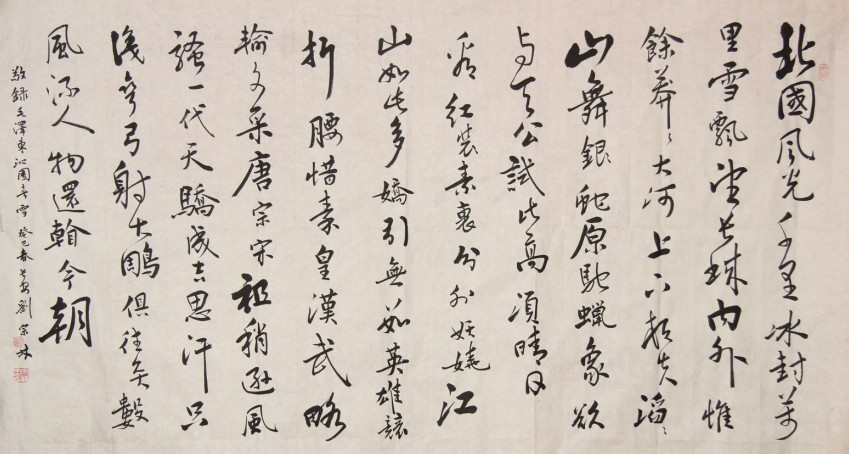 北國风光千里冰封萬
里雪飄望長城内外惟
餘莽〻大河上下頓失滔〻
山舞銀蛇原馳蠟象欲
与天公試比高須晴日
看紅裝素裹分外妖嬈江
山如此多嬌引無如英雄競
折腰惜秦皇漢武略
輸文采唐宗宋祖稍遜風
騷一代天驕成吉思汗只
識彎弓射大鵰俱往矣數
風流人物還看今朝
敬録毛澤東沁園春雪 癸巳春長安劉宗林